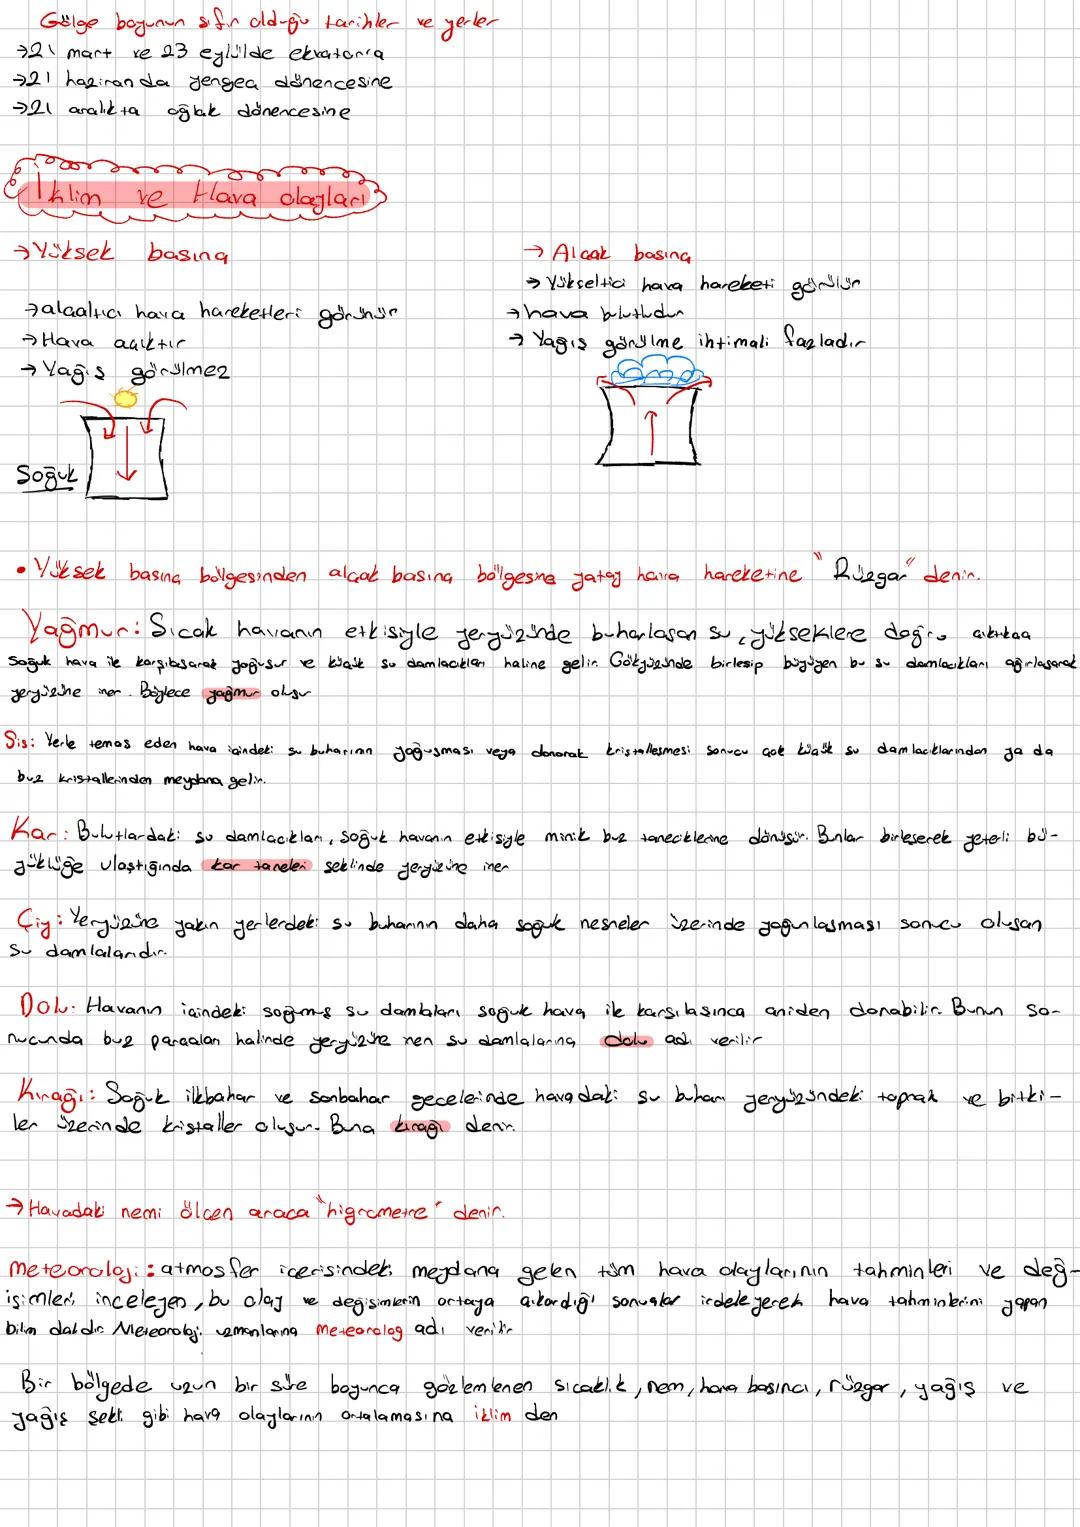 Gölge boyunun sıfır olduğu tarihler ve yerler
→21 mart ve 23 eylülde ekvatora
→21 haziranda yengeç dönencesine
→21 aralıkta oğlak dönencesine
İklim ve Hava olayları
→Yüksek basınç
→alçaltıcı hava hareketleri görünür
→Hava açıktır
→Yağış görülmez
Soğuk
→ Alçak basınç
→ Yükseltici hava hareketi görülür
→hava bulutludur
→ Yağış görülme ihtimali fazladır
• Yüksek basınç bölgesinden alçak basınç bölgesine yatay hava hareketine "Rüzgar" denir.
Yağmur: Sıcak havanın etkisiyle yeryüzünde buharlaşan su, yükseklere doğru çıktıkça
soğuk hava ile karşılaşarak yoğuşur ve küçük su damlacıkları haline gelir. Gökyüzünde birleşip büyüyen bu su damlacıkları ağırlaşarak
yeryüzüne iner. Böylece yağmur oluşur
Sis: Yerle temas eden hava içindeki su buharının yoğuşması veya donarak kristalleşmesi sonucu çok küçük su damlacıklarından ya da
buz kristallerinden meydana gelir.
Kar: Bulutlardaki su damlacıkları, soğuk havanın etkisiyle minik buz taneciklerine dönüşür. Bunlar birleşerek yeterli bü-
yüklüğe ulaştığında kar taneleri şeklinde yeryüzüne iner
Çiy: Yeryüzüne yakın yerlerdeki su buharının daha soğuk nesneler üzerinde yoğunlaşması sonucu oluşan
su damlalarıdır.
Dolu: Havanın içindeki soğumuş su damlaları soğuk hava ile karşılaşınca aniden donabilir. Bunun so-
nucunda buz parçaları halinde yeryüzüne inen su damlalarına dolu adı verilir
Kırağı: Soğuk ilkbahar ve sonbahar gecelerinde havadaki su buharı yeryüzündeki toprak ve bitki-
ler üzerinde kristaller oluşur. Buna kırağı denir.
→Havadaki nemi ölçen araca "higrometre" denir.
Meteoroloji: atmosfer içerisindeki meydana gelen tüm hava olaylarının tahminleri ve değ-
işimleri inceleyen, bu olay ve değişimlerin ortaya çıkardığı sonuçlar irdeleyerek hava tahminlerini yapan
bilim dalıdır. Meteoroloji uzmanlarına meteorolog adı verilir
Bir bölgede uzun bir süre boyunca gözlemlenen sıcaklık, nem, hava basıncı, rüzgar, yağış ve
yağış şekli gibi hava olaylarının ortalamasına iklim den